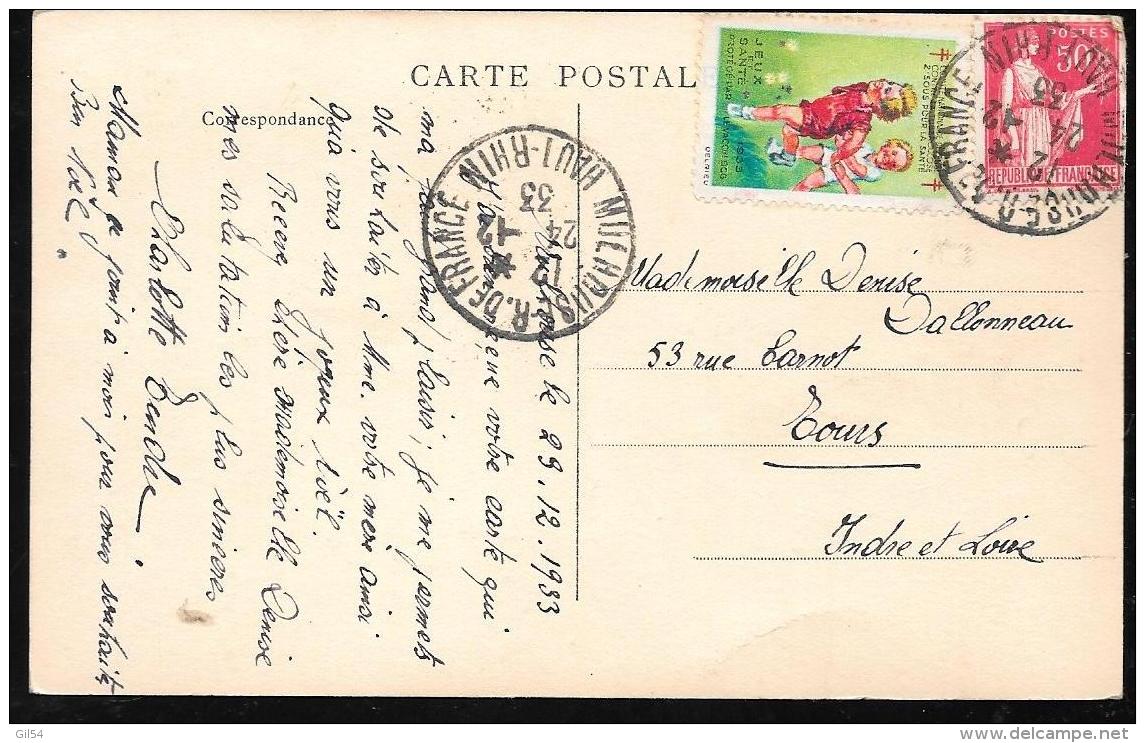 CARTE POSTALE
Correspondance
Mulhouse le 29.12.1933
votre carte qui
ma grand plaisir, je me permets
de souhaiter à Mme. votre mère ainsi
qu'à vous un joyeux Noël.
Recevez chère Mademoiselle Denise
mes salutation les plus sincères
Charlotte
Maman se joint à moi pour vous souhaiter
Bon Noël.
JEUX
ET
SANTÉ
1933
2 SOUS POUR LA SANTÉ
DELRIEU
POSTES
50c
REPUBLIQUE FRANÇAISE
MULHOUSE R. DE FRANCE
HAUT-RHIN
24
12
33
MULHOUSE R. DE FRANCE
HAUT-RHIN
24
12
33
Mademoiselle Denise
Dallonneau
53 rue Carnot
Tours
Indre et Loire
Gil54
www.delcampe.net